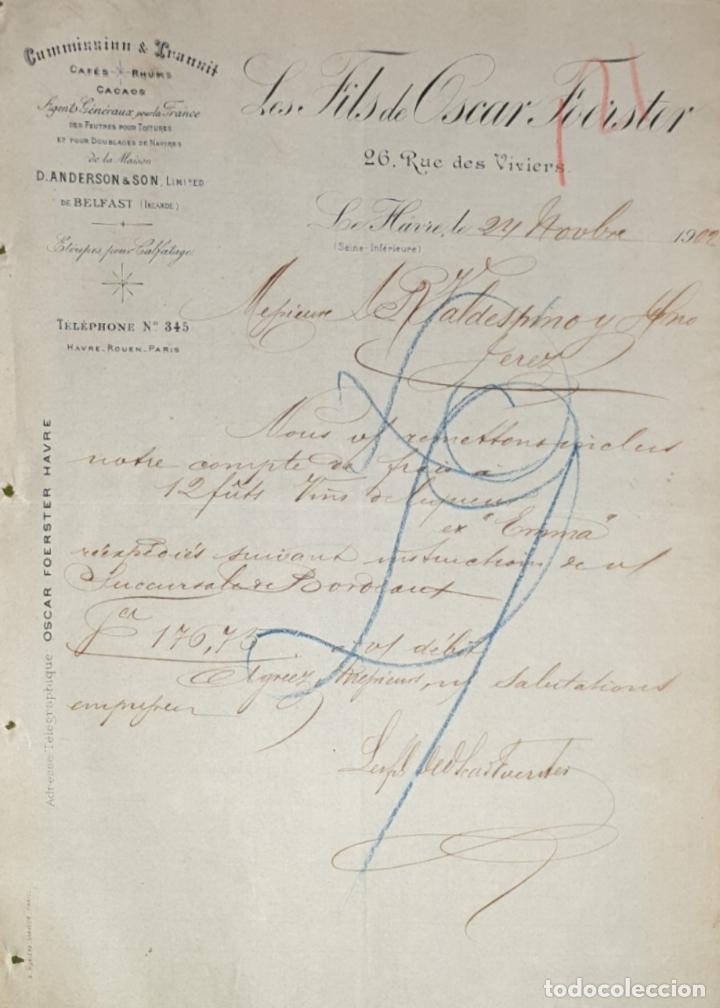 Commission & Transit
CAFÉS RHUMS
CACAOS
Agents Généraux pour la France
DES FEUTRES POUR TOITURES
ET POUR DOUBLAGES DE NAVIRES
de la Maison
D. ANDERSON & SON, LIMITED
DE BELFAST (IRLANDE)
Etoupes pour Calfatage
TÉLÉPHONE No 345
HAVRE-ROUEN-PARIS
Adresse Télégraphique OSCAR FOERSTER HAVRE
Les Fils de Oscar Foerster
26, Rue des Viviers.
Le Hâvre, le 24 Novbre 1902
(Seine-Inférieure)
Messieurs A R Valdespino y Hno
Jerez
Nous vs remettons inclus
notre compte de frais à
12 fûts Vins
ex "Emma"
réexpédiés suivant instructions de vs
Succursale de Bordeaux
176,75 à vs débit
Agréez, Messieurs, ns salutations
empressées
Les fils de Oscar Foerster
todocoleccion
todocoleccion.net